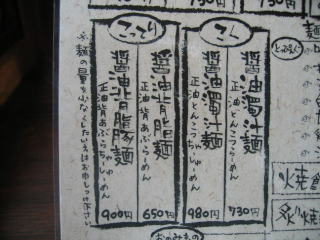 730円
こく
醤油濁汁麺
正油とんこつらーめん
730円
醤油濁汁豚麺
正油とんこつちゃしゅーめん
980円
こってり
醤油背脂麺
正油背あぶららーめん
650円
醤油背脂豚麺
正油背あぶらちゃしゅーめん
900円
※麺の量を少なくしたい人はお申しつけ下さい
麺
とっぴんぐ
焼
炙焼
おのみもの